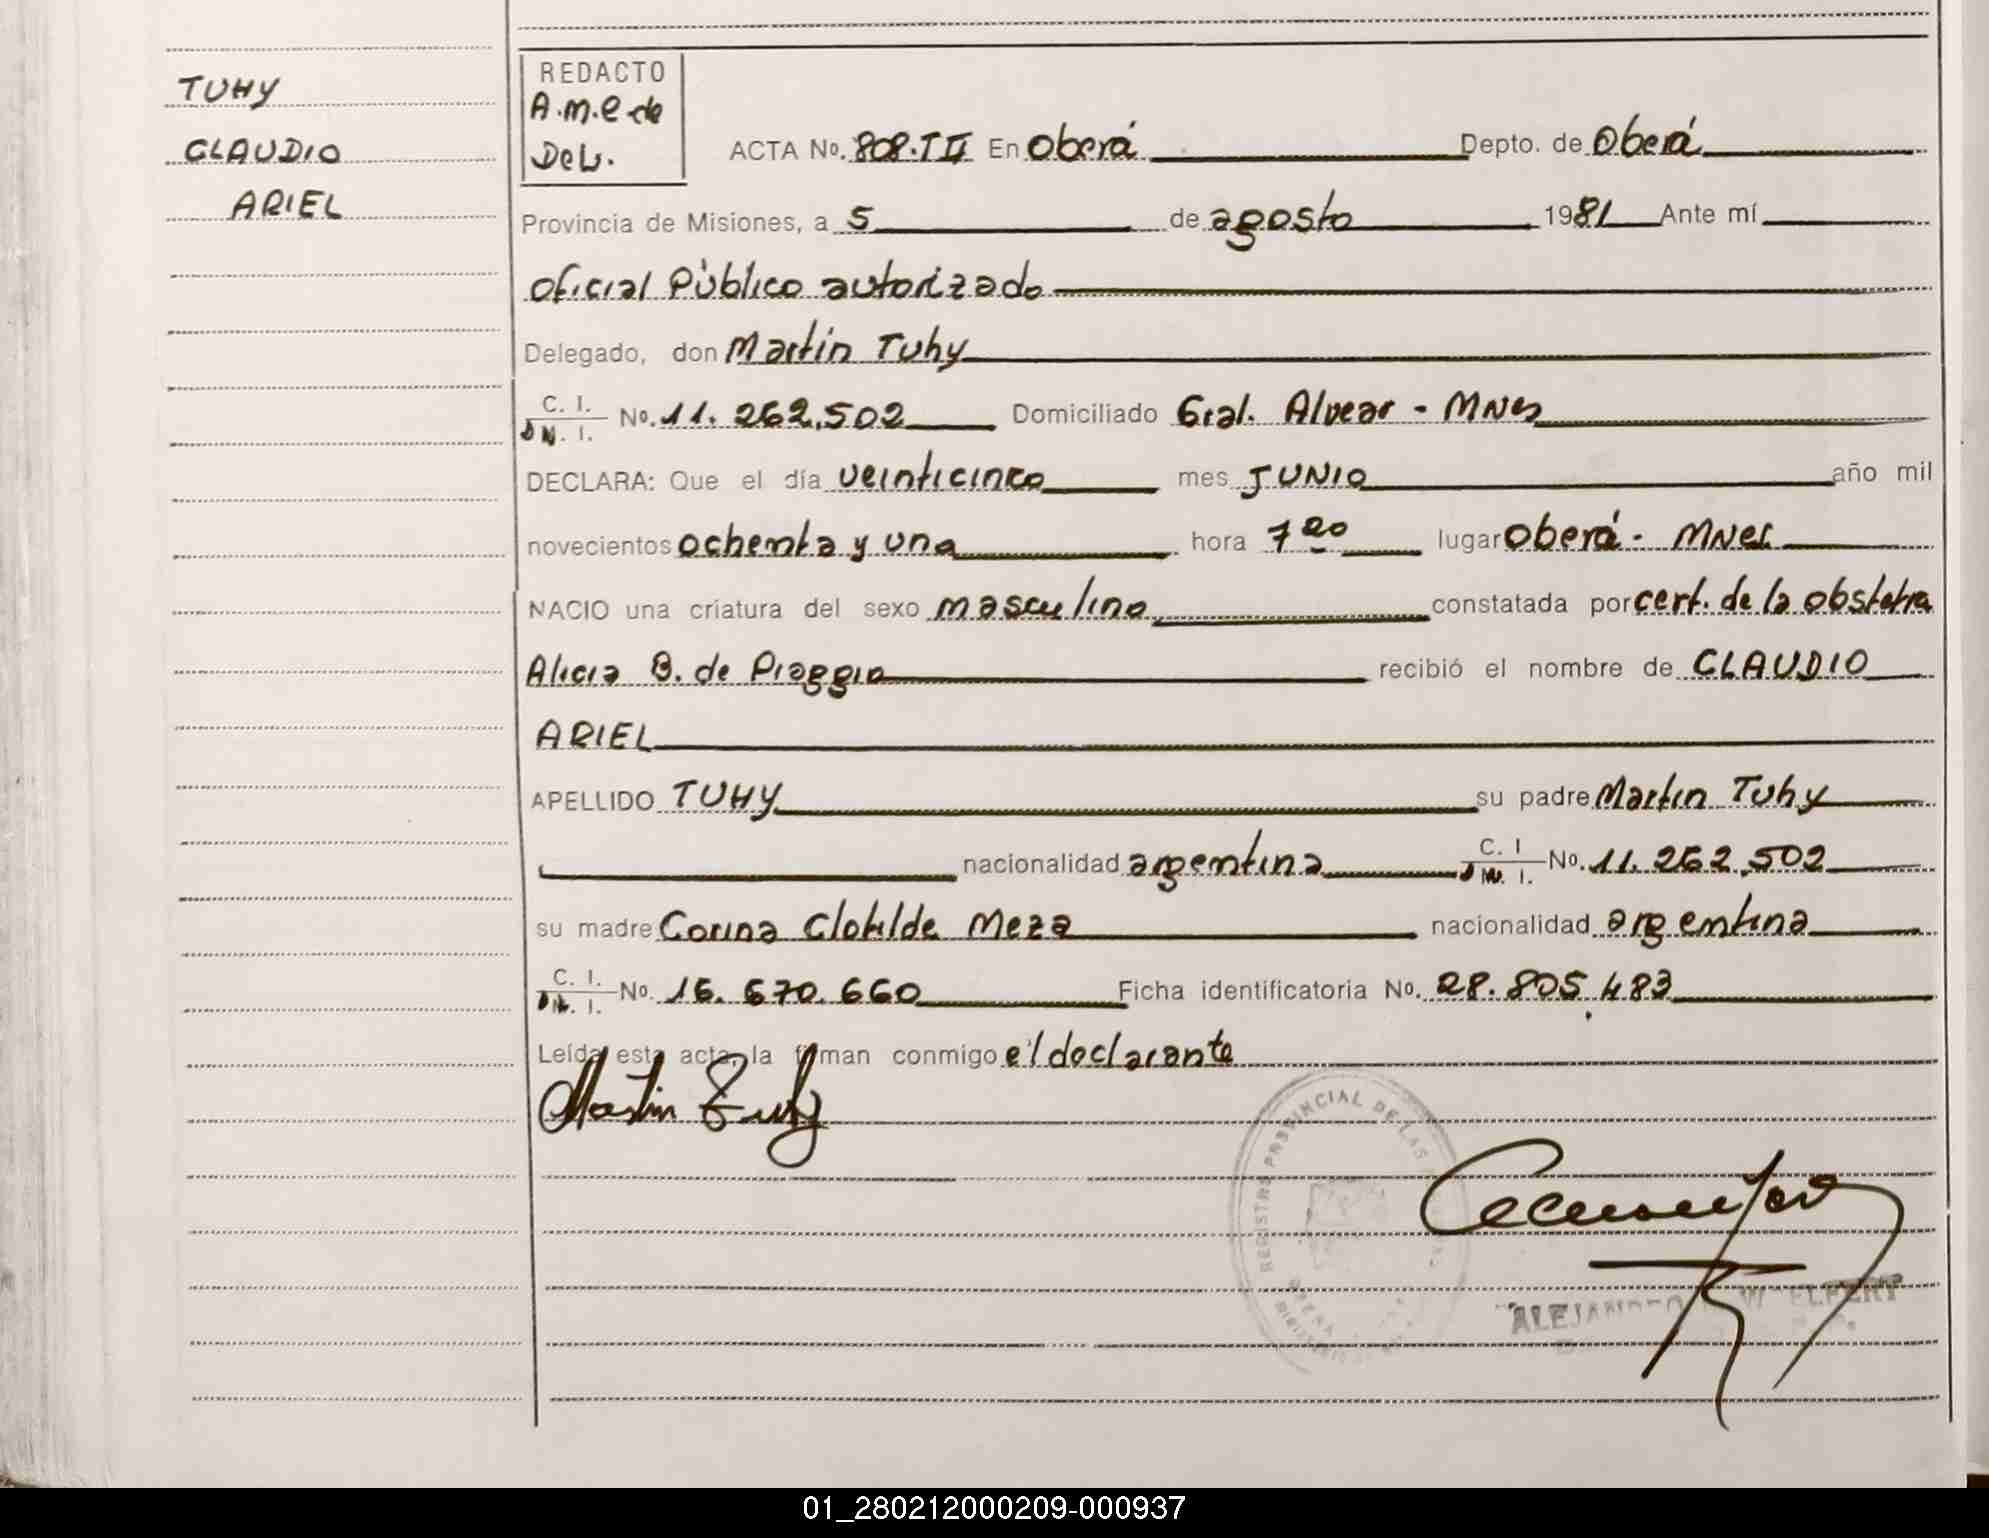 TUHY
CLAUDIO
ARIEL
REDACTO
A.M.E de
Del.
ACTA No. 808.TII En Oberá Depto. de Oberá
Provincia de Misiones, a 5 de agosto 1981 Ante mí
Oficial Público autorizado
Delegado, don Martin Tuhy
C. I.
D N. I. No. 11.262.502 Domiciliado Gral. Alvear - MNes
DECLARA: Que el día veinticinco mes JUNIO año mil
novecientos ochenta y uno hora 7 20 lugar Oberá - MNes
NACIO una criatura del sexo masculino constatada por cert. de la obstetra
Alicia B. de Piaggio recibió el nombre de CLAUDIO
ARIEL
APELLIDO TUHY su padre Martin Tuhy
nacionalidad argentina C. I
D N. I. No. 11.262.502
su madre Corina Clotilde Meza nacionalidad argentina
C. I.
D N. I. No. 16.670.660 Ficha identificatoria No. 28.805.483
Leída esta acta, la firman conmigo el declarante
Martin Tuhy
REGISTRO PROVINCIAL DE LAS
ALEJANDRO W. ELFERT
01_280212000209-000937